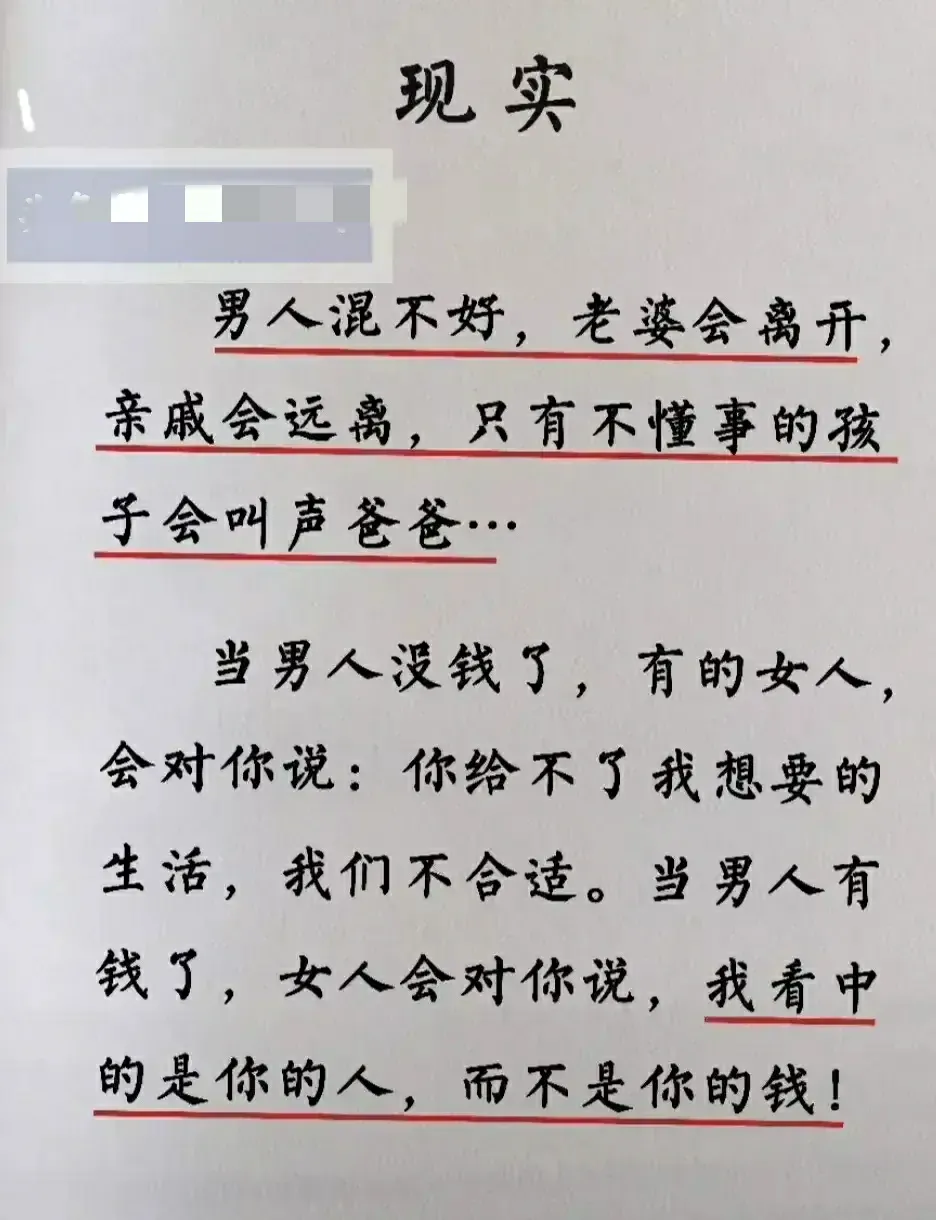 现实
男人混不好，老婆会离开，
亲戚会远离，只有不懂事的孩
子会叫声爸爸…
当男人没钱了，有的女人，
会对你说：你给不了我想要的
生活，我们不合适。当男人有
钱了，女人会对你说，我看中
的是你的人，而不是你的钱！